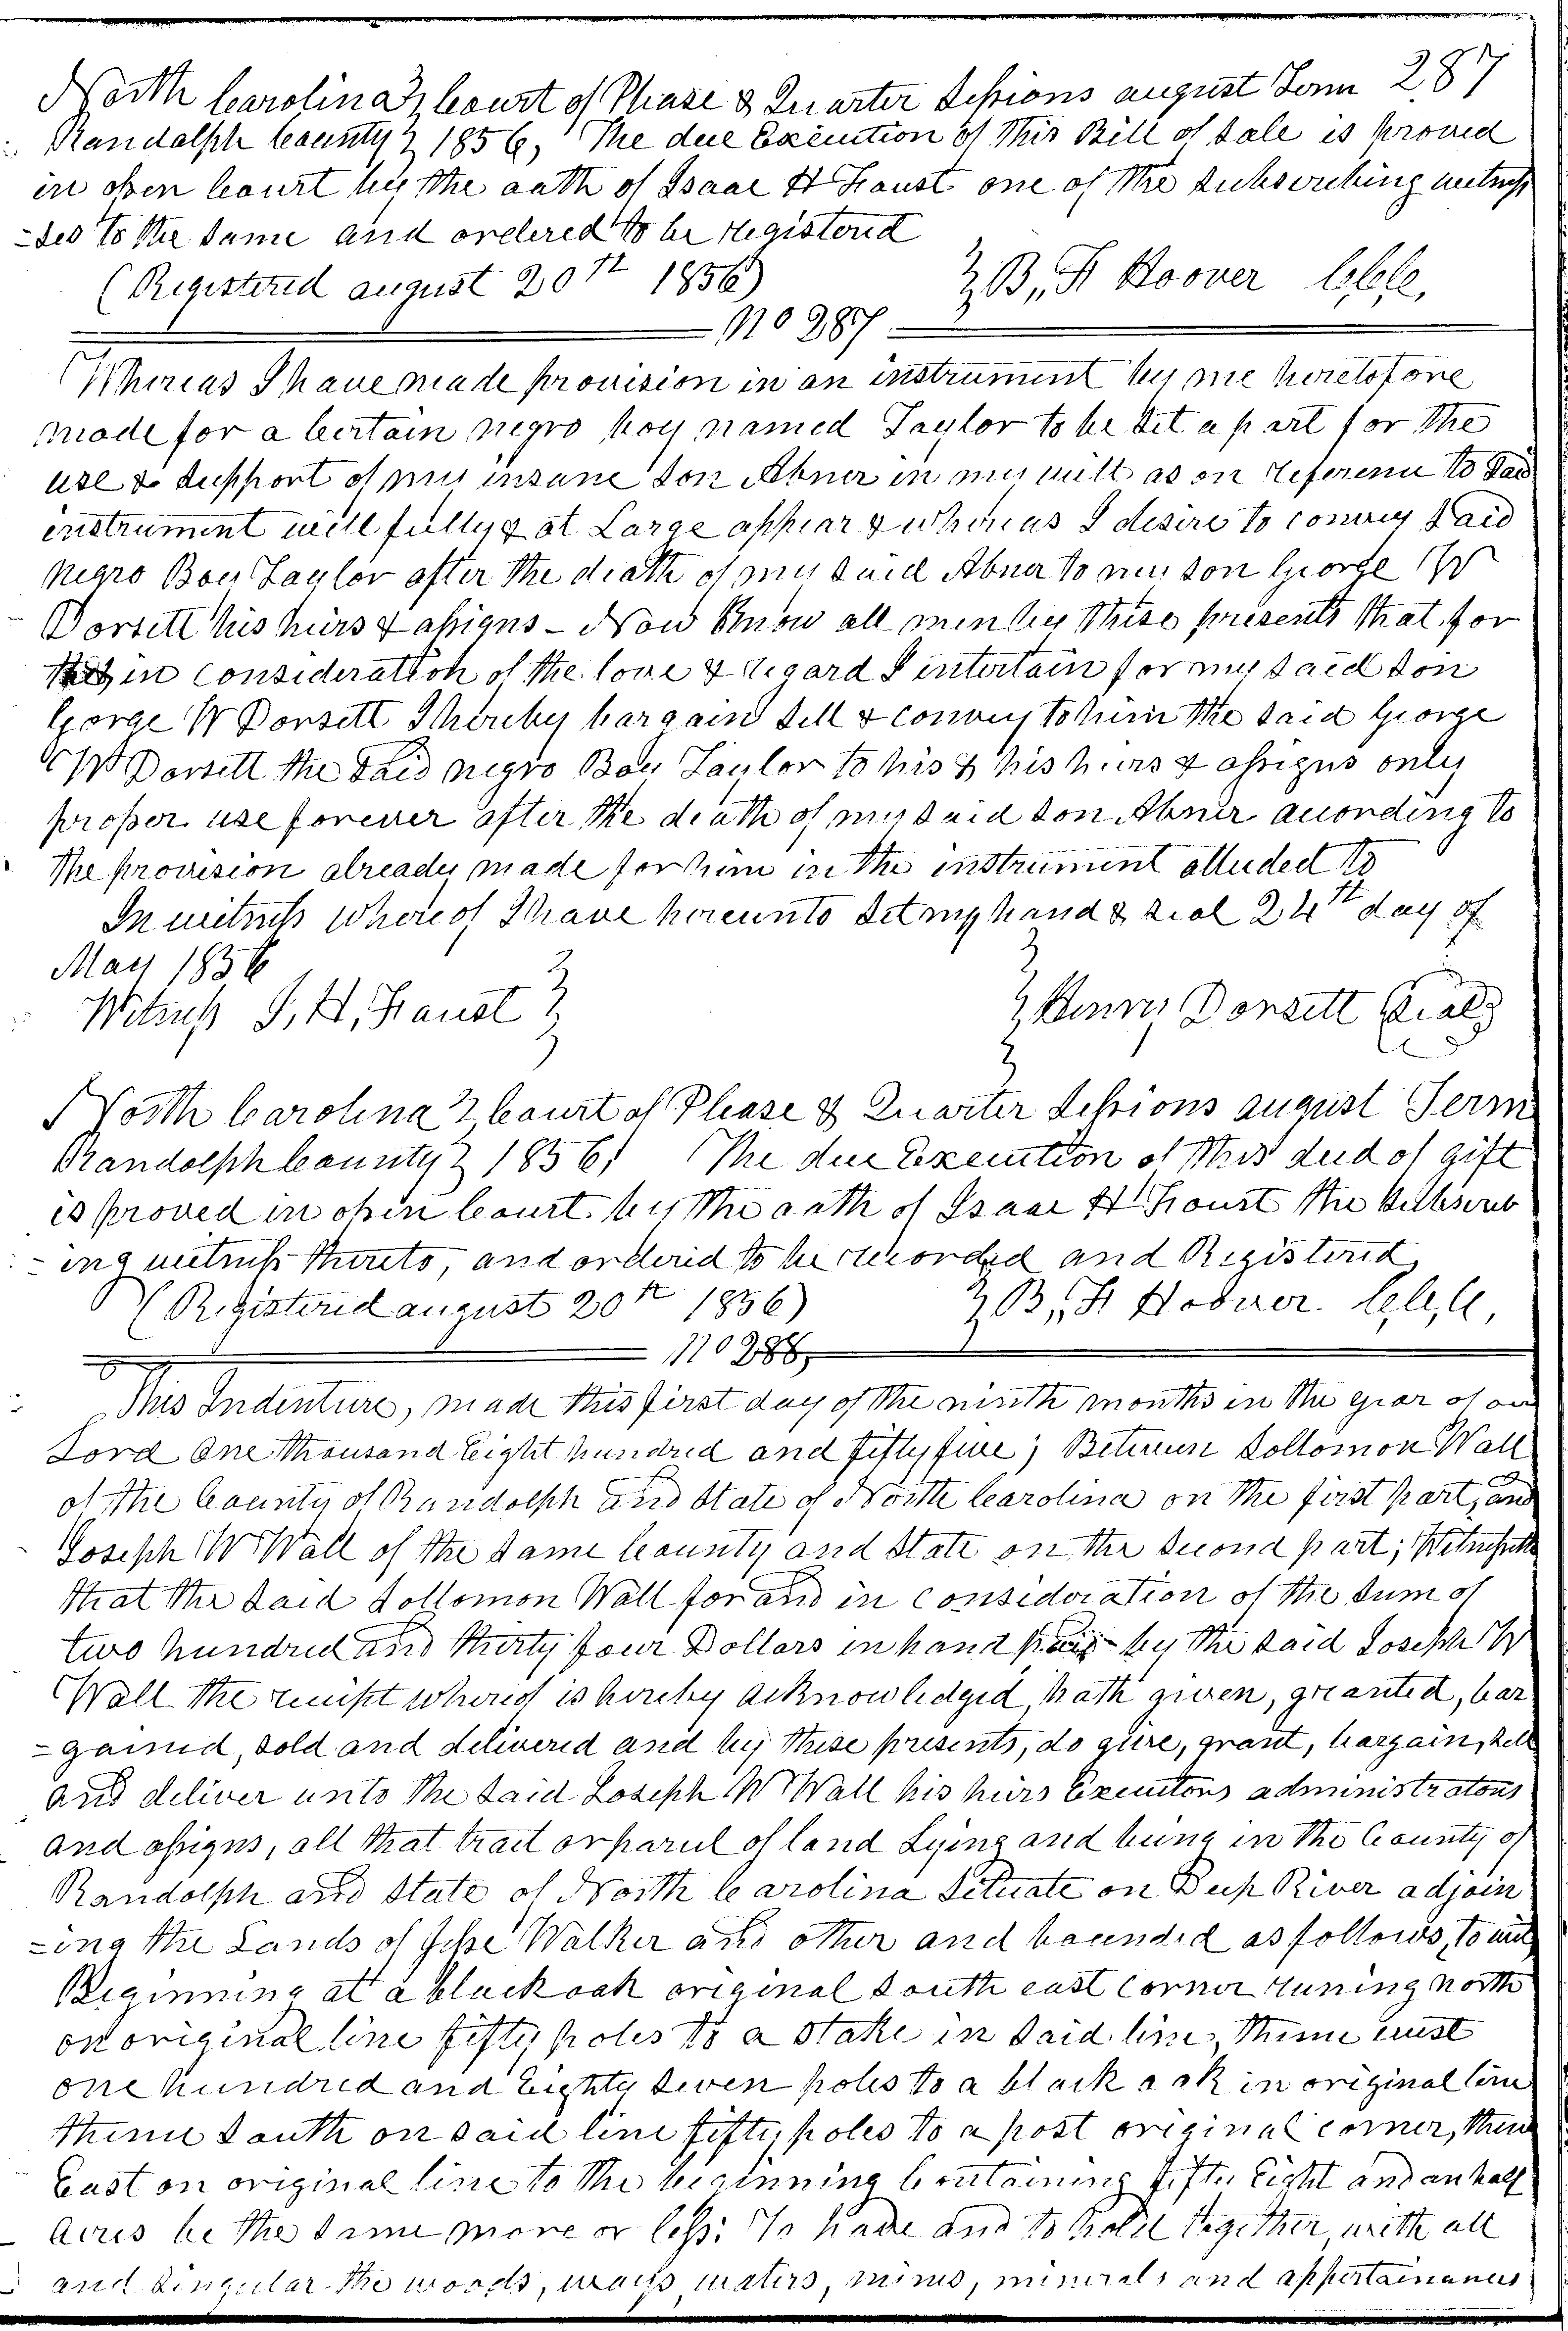 North Carolina } Court of Please & Quarter Sessions august Term 287
Randolph County } 1856, The due Execution of this Bill of Sale is proved
in open Court by the oath of Isaac H Foust one of the Subscribing witness
-ses to the same and ordered to be Registerd
(Registered august 20th 1856) } B,, F Hoover C,C,C,
No 287
Whereas I have made provision in an instrument by me heretofore
made for a Certain negro boy named Taylor to be set apart for the
use & support of my insane son Abner in my will as on referenc to said
instrument will fully & at Large appear & whereas I desire to convey said
negro Boy Taylor after the death of my said Abner to my son George W
Dorsett his heirs & assigns – Now Know all men by these presents that for
& in consideration of the love & regard I intertain for my said son
George W Dorsett I hereby bargain sell & convey to him the said George
W Dorsett the said negro Boy Taylor to his & his heirs & assigns only
proper use forever after the death of my said son Abner according to
the provision already made for him in the instrument alluded to
In witness whereof I have hereunto set my hand & seal 24th day of
May 1856
Witness I, H, Foust } } Henry Dorsett {Seal}
North Carolina } Court of Please & Quarter Sessions august Term
Randolph County } 1856, The due Execution of this deed of gift
is proved in open Court by the oath of Isaac H Foust the subscrib
-ing witness thereto, and ordered to be recorded and Registerd,
(Registerd august 20th 1856) } B,, F Hoover. C,C,C,
No 288,
This Indenture, made this first day of the ninth months in the year of our
Lord One thousand Eight hundred and fifty five; Between Sollomon Wall
of the County of Randolph and State of North Carolina on the first part, and
Joseph W Wall of the same County and State on the second part; Witnesseth
that the said Sollomon Wall for and in consideration of the sum of
two hundred and thirty four Dollars in hand paid by the said Joseph W
Wall the receipt whereof is hereby acknowledged, hath given, granted, bar
-gained, sold and delivered and by these presents, do give, grant, bargain, sell
and deliver unto the said Joseph W Wall his heirs Executors administrators
and assigns, all that tract or parcel of land Lying and being in the County of
Randolph and State of North Carolina Situate on Deep River adjoin
-ing the Lands of Jesse Walker and other and bounded as follows, to wit
Beginning at a black oak original south east corner runing north
on original line fifty poles to a stake in said line, thence west
one hundred and Eighty seven poles to a black oak in original line
thence south on said line fifty poles to a post original corner, thence
East on original line to the beginning Containing fifty Eight and an half
acres be the same more or less: To have and to hold together, with all
and singular the woods, ways waters, mines, minerals and appertainances